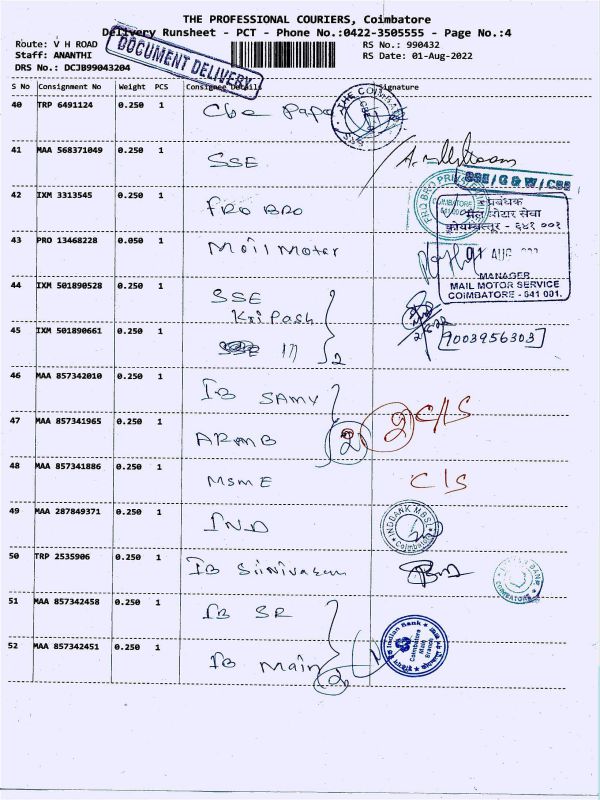 THE PROFESSIONAL COURIERS, Coimbatore
Delivery Runsheet - PCT - Phone No.:0422-3505555 - Page No.:4
Route: V H ROAD
RS No.: 990432
Staff: ANANTHI
RS Date: 01-Aug-2022
DRS No.: DCJB99043204
DOCUMENT DELIVERY
S No Consignment No Weight PCS Consignee Details Signature
40 TRP 6491124 0.250 1 Cbe Papa
41 MAA 568371049 0.250 1 SSE
SSE/G & W/CBE
42 IXM 3313545 0.250 1 PRO BRO
PRO BRO
COIMBATORE
प्रबंधक
मेल मोटर सेवा
कोयम्बत्तूर - ६४१ ००१
43 PRO 13468228 0.050 1 Mail Motor
AUG
MANAGER
MAIL MOTOR SERVICE
COIMBATORE - 641 001.
44 IXM 501890528 0.250 1 SSE
45 IXM 501890661 0.250 1 2
9003956303
46 MAA 857342010 0.250 1 IB SAMY
47 MAA 857341965 0.250 1 ARMB 2 2 C/S
48 MAA 857341886 0.250 1 MSME C/S
49 MAA 287849371 0.250 1 IND
INDBANK MBSL
Coimbatore
50 TRP 2535906 0.250 1 IB Srinivasan
COIMBATORE
51 MAA 857342458 0.250 1 IB SR
52 MAA 857342451 0.250 1 IB Main 2
Indian Bank
Coimbatore
Main
Branch